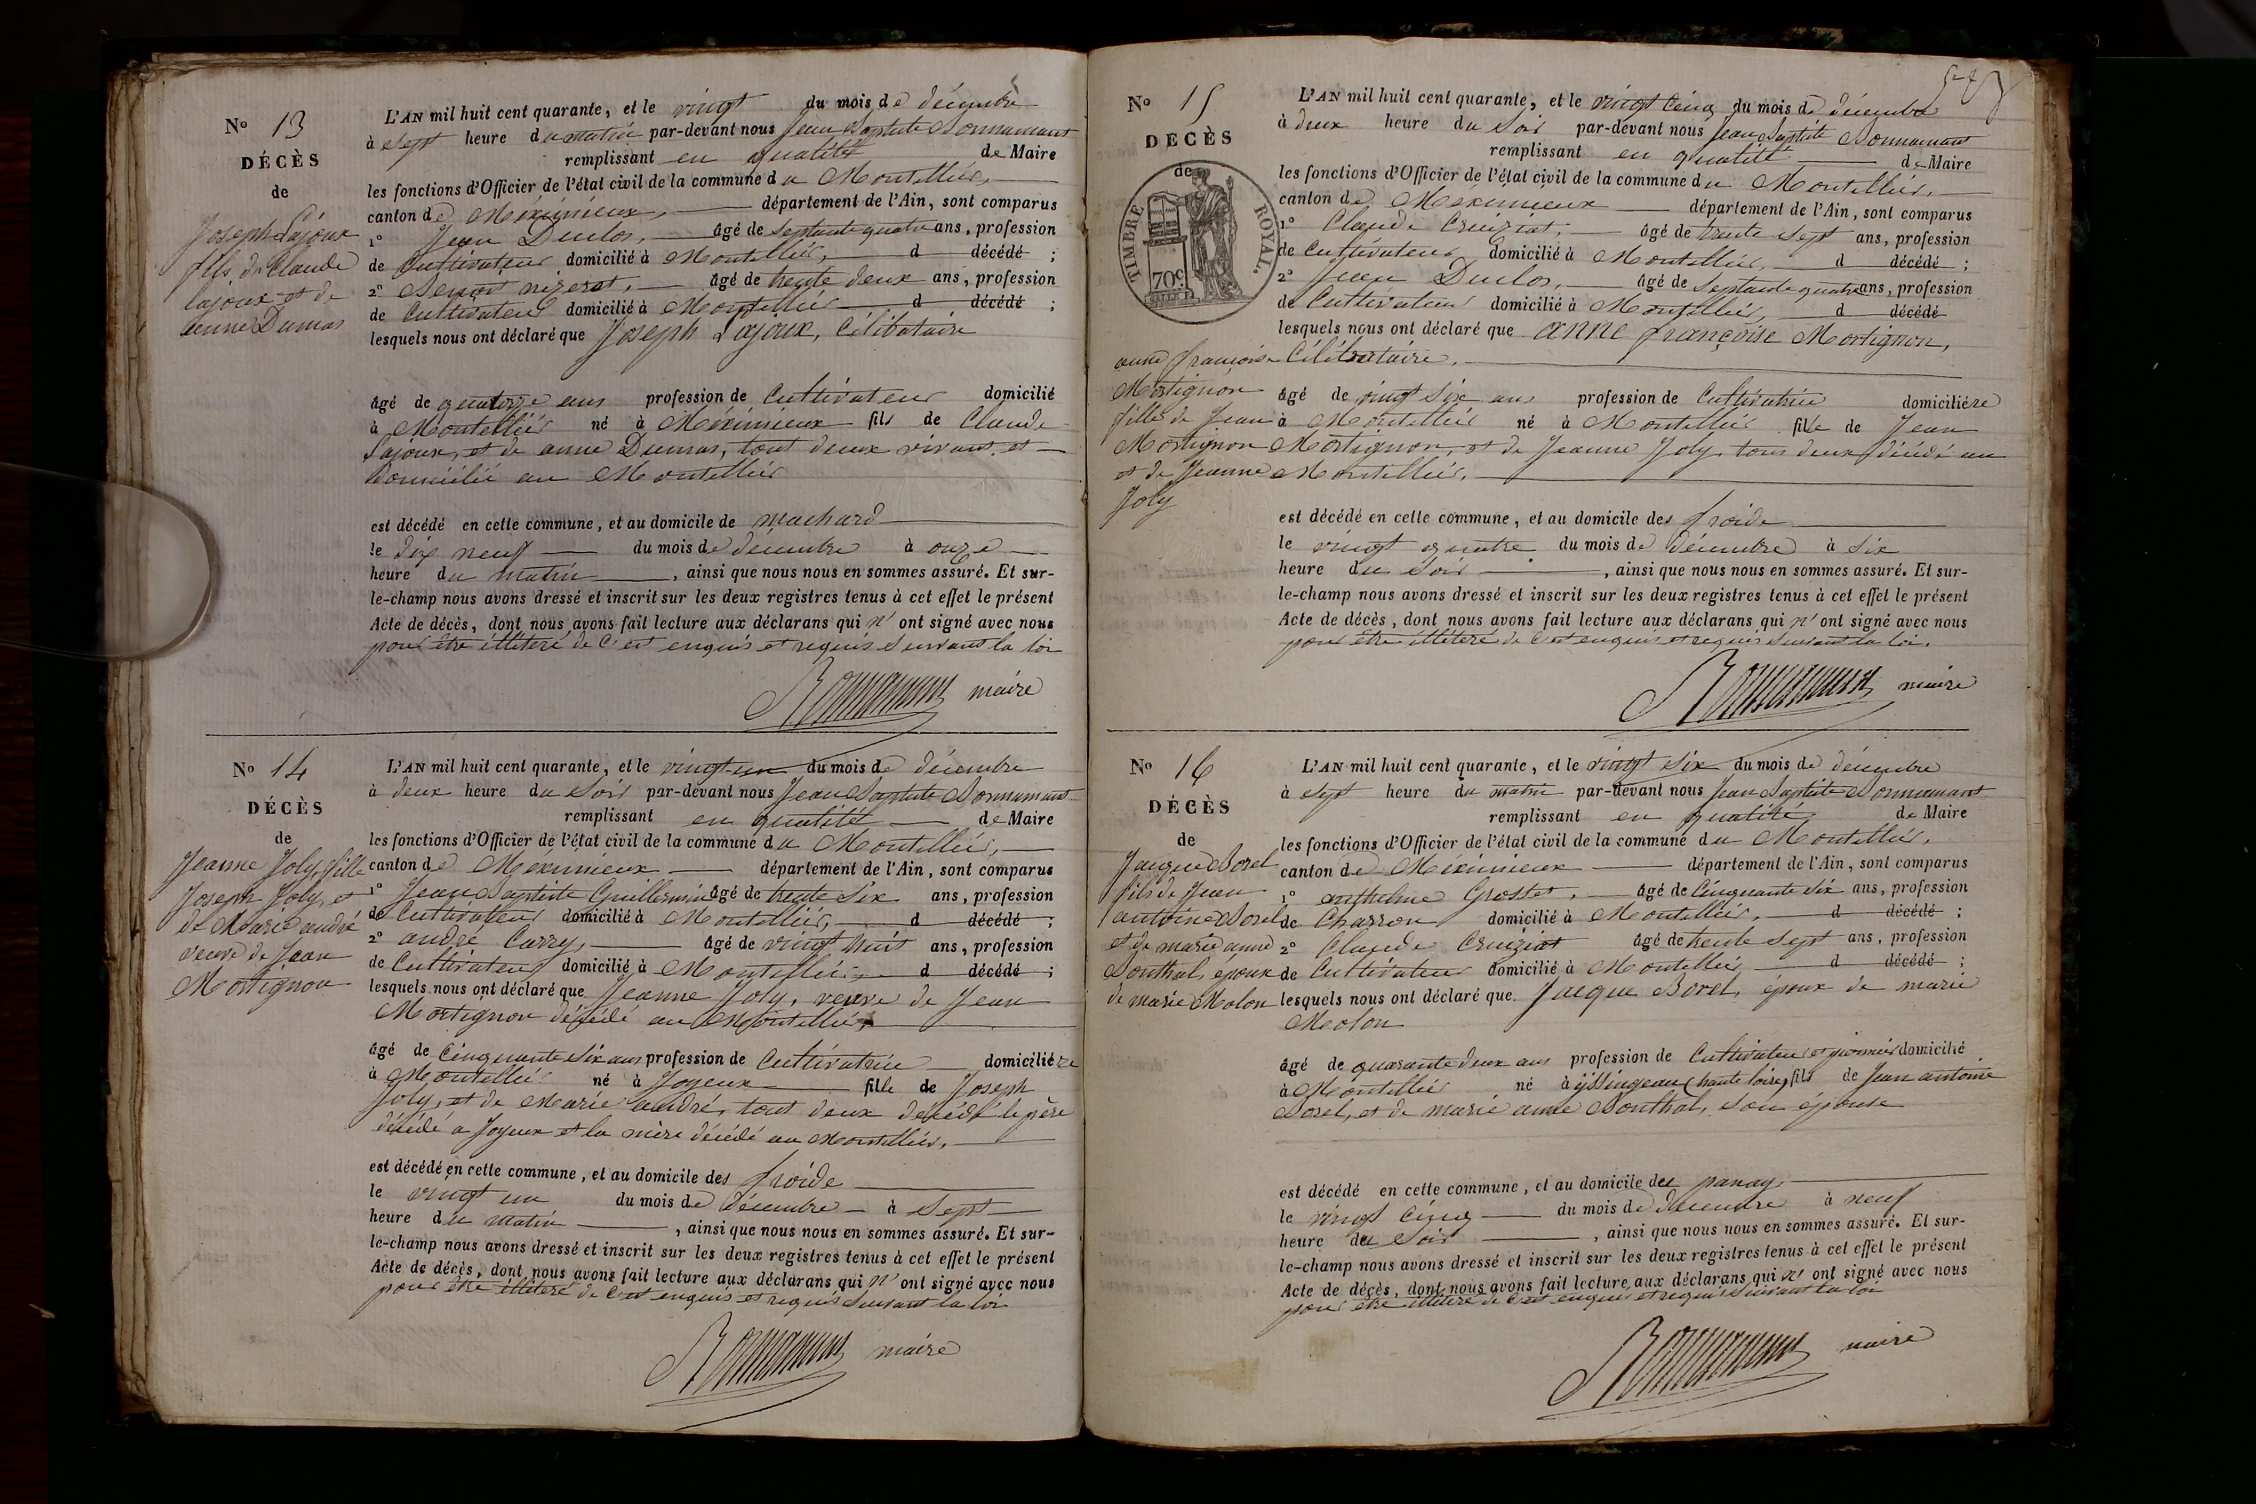 No 13
DÉCÈS
de
Joseph Lajoux
fils de Claude
lajoux et de
anne Dumas
L'AN mil huit cent quarante, et le vingt du mois de décembre
à sept heure du matin par-devant nous Jean Baptiste Bonnamant
remplissant en qualité de Maire
les fonctions d'Officier de l'état civil de la commune du Montellier,
canton de Méximieux, département de l'Ain, sont comparus
1° Jean Duclos, âgé de septante quatre ans, profession
de Cultivateur domicilié à Montellier, d décédé ;
2° Benoit nizeret, âgé de trente deux ans, profession
de Cultivateur domicilié à Montellier d décédé ;
lesquels nous ont déclaré que Joseph Lajoux, Célibataire
âgé de quatorze ans profession de Cultivateur domicilié
à Montellier né à Méximieux fils de Claude
Lajoux, et de anne Dumas, tout deux vivant et
domicilié au Montellier
est décédé en cette commune, et au domicile de machard
le dix neuf du mois de décembre à onze
heure du matin, ainsi que nous nous en sommes assuré. Et sur-
le-champ nous avons dressé et inscrit sur les deux registres tenus à cet effet le présent
Acte de décès, dont nous avons fait lecture aux déclarans qui n' ont signé avec nous
pour être illiteré de C'est enquis et requis suivant la loi
Bonnamant maire
No 14
DÉCÈS
de
Jeanne Joly, fille
Joseph Joly, et
de Marie andré
veuve de Jean
Mortignon
L'AN mil huit cent quarante, et le vingt-un du mois de décembre
à deux heure du soir par-devant nous Jean Baptiste Bonnamant
remplissant en qualité de Maire
les fonctions d'Officier de l'état civil de la commune du Montellier,
canton de Meximieux département de l'Ain, sont comparus
1° Jean Baptiste Guillermin âgé de trente six ans, profession
de Cultivateur domicilié à Montellier, d décédé ;
2° andré Carry, âgé de vingt huit ans, profession
de Cultivateur domicilié à Montellier d décédé ;
lesquels nous ont déclaré que Jeanne Joly, veuve de Jean
Mortignon décédé au Montellier,
âgé de Cinquante six ans profession de Cultivatrice domicilié re
à Montellier né à Joyeux fille de Joseph
Joly, et de Marie andré, tout deux décédé le père
décédé a Joyeux et la mère décédé au Montellier,
est décédé en cette commune, et au domicile des froide
le vingt un du mois de décembre à sept
heure du matin, ainsi que nous nous en sommes assuré. Et sur-
le-champ nous avons dressé et inscrit sur les deux registres tenus à cet effet le présent
Acte de décès, dont nous avons fait lecture aux déclarans qui n' ont signé avec nous
pour être illiteré de C'est enquis et requis suivant la loi
Bonnamant maire
No 15
DÉCÈS
de
TIMBRE ROYAL.
70c.
anne françoise
Mortignon
fille de Jean
Mortignon
et de Jeanne
Joly
L'AN mil huit cent quarante, et le vingt Cinq du mois de décembre
à deux heure du soir par-devant nous Jean Baptiste Bonnamant
remplissant en qualité de Maire
les fonctions d'Officier de l'état civil de la commune du Montellier,
canton de Méximieux département de l'Ain, sont comparus
1° Claude Cruiziat, âgé de trente sept ans, profession
de Cultivateur domicilié à Montellier, d décédé ;
2° Jean Duclos, âgé de septante quatre ans, profession
de Cultivateur domicilié à Montellier, d décédé
lesquels nous ont déclaré que anne françoise Mortignon,
Célibataire,
âgé de vingt six ans profession de Cultivatrice domicilié re
à Montellier né à Montellier fille de Jean
Mortignon, et de Jeanne Joly, tous deux décédé au
Montellier,
est décédé en cette commune, et au domicile des froide
le vingt quatre du mois de décembre à six
heure du soir, ainsi que nous nous en sommes assuré. Et sur-
le-champ nous avons dressé et inscrit sur les deux registres tenus à cet effet le présent
Acte de décès, dont nous avons fait lecture aux déclarans qui n' ont signé avec nous
pour être illiteré de C'est enquis et requis suivant la loi.
Bonnamant maire
No 16
DÉCÈS
de
Jacque Borel
fils de Jean
antoine Borel
et de marie anne
Bonthal, époux
de marie Molon
L'AN mil huit cent quarante, et le vingt six du mois de décembre
à sept heure du matin par-devant nous Jean Baptiste Bonnamant
remplissant en qualité de Maire
les fonctions d'Officier de l'état civil de la commune du Montellier,
canton de Méximieux département de l'Ain, sont comparus
1° anthelme Grosset, âgé de Cinquante six ans, profession
de Charron domicilié à Montellier, d décédé ;
2° Claude Cruiziat âgé de trente sept ans, profession
de Cultivateur domicilié à Montellier d décédé ;
lesquels nous ont déclaré que Jacque Borel, époux de marie
Molon
âgé de quarante deux ans profession de Cultivateur et pionnier domicilié
à Montellier né à yssingeau (haute loire) fils de Jean antoine
Borel, et de marie anne Bonthal, son épouse
est décédé en cette commune, et au domicile du panay
le vingt Cinq du mois de décembre à neuf
heure du soir, ainsi que nous nous en sommes assuré. Et sur-
le-champ nous avons dressé et inscrit sur les deux registres tenus à cet effet le présent
Acte de décès, dont nous avons fait lecture aux déclarans qui n' ont signé avec nous
pour être illiteré de C'est enquis et requis suivant la loi
Bonnamant maire